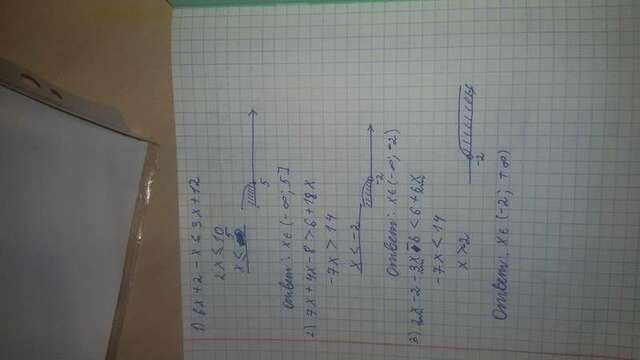 1) 6x + 2 - x ≤ 3x + 12
2x ≤ 10
x ≤ 5
5
Ответ: x ∈ (-∞; 5]
2) 7x + 4x - 8 > 6 + 18x
-7x > 14
x < -2
-2
Ответ: x ∈ (-∞; -2)
3) 2x - 2 - 3x
< 6 + 6x
-7x < 14
x > 2
-2
Ответ: x ∈ (-2; +∞)